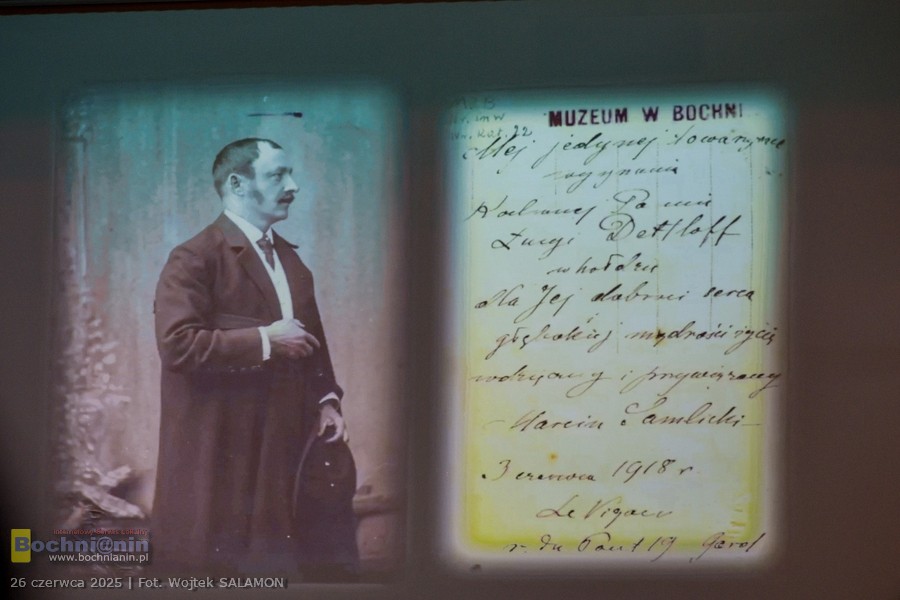 MUZEUM W BOCHNI
22
Mej jedynej towarzyszce
wygnania
Kochanej Pannie
Detloff
w hołdzie
Dla Jej dobroci serca
głębokiej mądrości życia
wdzięczny i przywiązany
Marcin Samlicki
3 czerwca 1918 r.
Le Vigan
r. du Pont 19 Gard
Bochni@nin
www.bochnianin.pl
26 czerwca 2025 | Fot. Wojtek SALAMON